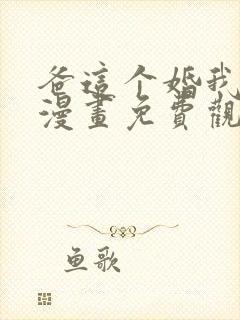 爸這个婚我
漫畫免費觀
鱼歌